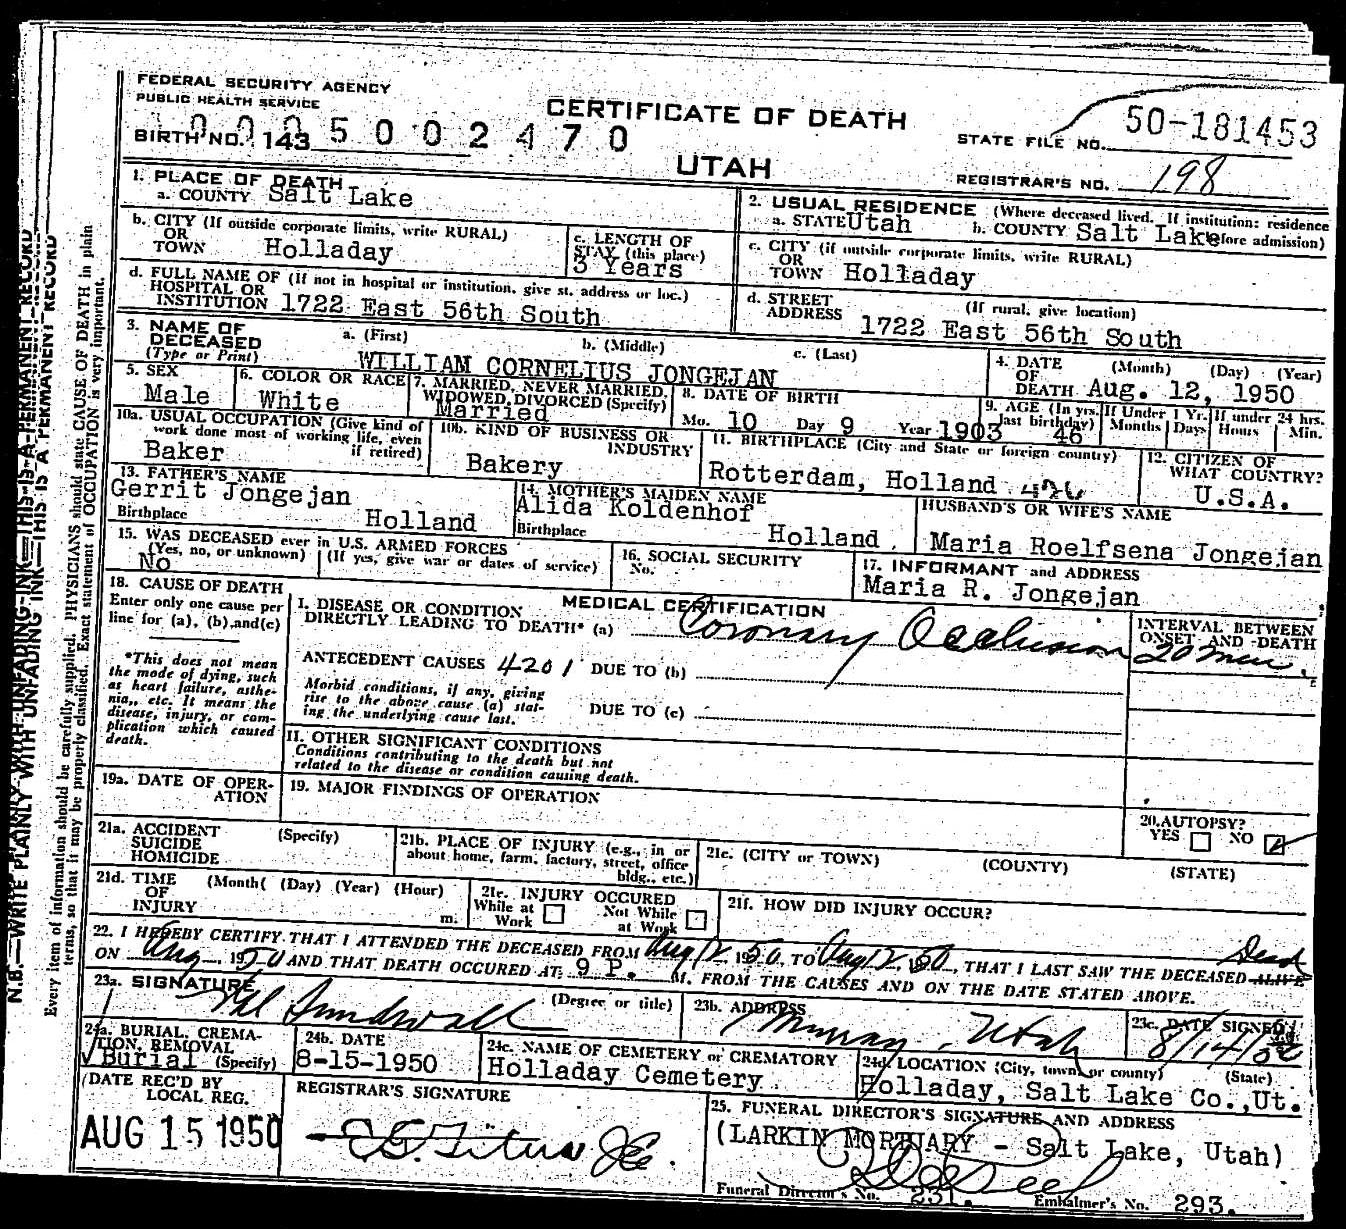 FEDERAL SECURITY AGENCY
PUBLIC HEALTH SERVICE
CERTIFICATE OF DEATH
UTAH
BIRTH NO. 143
5002470
STATE FILE NO. 50-181453
REGISTRAR'S NO. 198
1. PLACE OF DEATH
a. COUNTY Salt Lake
2. USUAL RESIDENCE (Where deceased lived. If institution: residence before admission)
a. STATE Utah b. COUNTY Salt Lake
b. CITY (If outside corporate limits, write RURAL)
OR
TOWN Holladay
c. LENGTH OF
STAY (this place)
3 Years
c. CITY (if outside corporate limits, write RURAL)
OR
TOWN Holladay
d. FULL NAME OF (If not in hospital or institution, give st. address or loc.)
HOSPITAL OR
INSTITUTION 1722 East 56th South
d. STREET (If rural, give location)
ADDRESS 1722 East 56th South
3. NAME OF
DECEASED
(Type or Print)
a. (First) b. (Middle) c. (Last)
WILLIAM CORNELIUS JONGEJAN
4. DATE (Month) (Day) (Year)
OF
DEATH Aug. 12, 1950
5. SEX
Male
6. COLOR OR RACE
White
7. MARRIED, NEVER MARRIED,
WIDOWED, DIVORCED (Specify)
Married
8. DATE OF BIRTH
Mo. 10 Day 9 Year 1903
9. AGE (In yrs. last birthday)
46
If Under 1 Yr.
Months Days
If under 24 hrs.
Hours Min.
10a. USUAL OCCUPATION (Give kind of
work done most of working life, even
if retired)
Baker
10b. KIND OF BUSINESS OR
INDUSTRY
Bakery
11. BIRTHPLACE (City and State or foreign country)
Rotterdam, Holland
12. CITIZEN OF
WHAT COUNTRY?
U.S.A.
13. FATHER'S NAME
Gerrit Jongejan
Birthplace Holland
14. MOTHER'S MAIDEN NAME
Alida Koldenhof
Birthplace Holland
HUSBAND'S OR WIFE'S NAME
Maria Roelfsena Jongejan
15. WAS DECEASED ever in U.S. ARMED FORCES
(Yes, no, or unknown) (If yes, give war or dates of service)
No
16. SOCIAL SECURITY
No.
17. INFORMANT and ADDRESS
Maria R. Jongejan
18. CAUSE OF DEATH
Enter only one cause per
line for (a), (b), and (c)
*This does not mean
the mode of dying, such
as heart failure, asthe-
nia, etc. It means the
disease, injury, or com-
plication which caused
death.
MEDICAL CERTIFICATION
I. DISEASE OR CONDITION
DIRECTLY LEADING TO DEATH* (a) Coronary Occlusion
INTERVAL BETWEEN
ONSET AND DEATH
20 min.
ANTECEDENT CAUSES 4201 DUE TO (b)
Morbid conditions, if any, giving
rise to the above cause (a) stat-
ing the underlying cause last.
DUE TO (c)
II. OTHER SIGNIFICANT CONDITIONS
Conditions contributing to the death but not
related to the disease or condition causing death.
19a. DATE OF OPER-
ATION
19. MAJOR FINDINGS OF OPERATION
20. AUTOPSY?
YES NO
21a. ACCIDENT (Specify)
SUICIDE
HOMICIDE
21b. PLACE OF INJURY (e.g., in or
about home, farm, factory, street, office
bldg., etc.)
21c. (CITY or TOWN) (COUNTY) (STATE)
21d. TIME (Month( (Day) (Year) (Hour)
OF
INJURY m.
21e. INJURY OCCURED
While at Work
Not While at Work
21f. HOW DID INJURY OCCUR?
22. I HEREBY CERTIFY THAT I ATTENDED THE DECEASED FROM Aug 12 1950, TO Aug 12, 1950, THAT I LAST SAW THE DECEASED ALIVE Dead
ON Aug 1950 AND THAT DEATH OCCURED AT 9 P. M. FROM THE CAUSES AND ON THE DATE STATED ABOVE.
23a. SIGNATURE (Degree or title)
23b. ADDRESS
Murray, Utah
23c. DATE SIGNED
8/14/50
24a. BURIAL, CREMA-
TION, REMOVAL
Burial (Specify)
24b. DATE
8-15-1950
24c. NAME OF CEMETERY or CREMATORY
Holladay Cemetery
24d. LOCATION (City, town, or county) (State)
Holladay, Salt Lake Co., Ut.
DATE REC'D BY
LOCAL REG.
AUG 15 1950
REGISTRAR'S SIGNATURE
25. FUNERAL DIRECTOR'S SIGNATURE AND ADDRESS
(LARKIN MORTUARY - Salt Lake, Utah)
Funeral Director's No. 231. Embalmer's No. 293.
N.B.—WRITE PLAINLY WITH UNFADING INK—THIS IS A PERMANENT RECORD
Every item of information should be carefully supplied. PHYSICIANS should state CAUSE OF DEATH in plain
terms, so that it may be properly classified. Exact statement of OCCUPATION is very important.